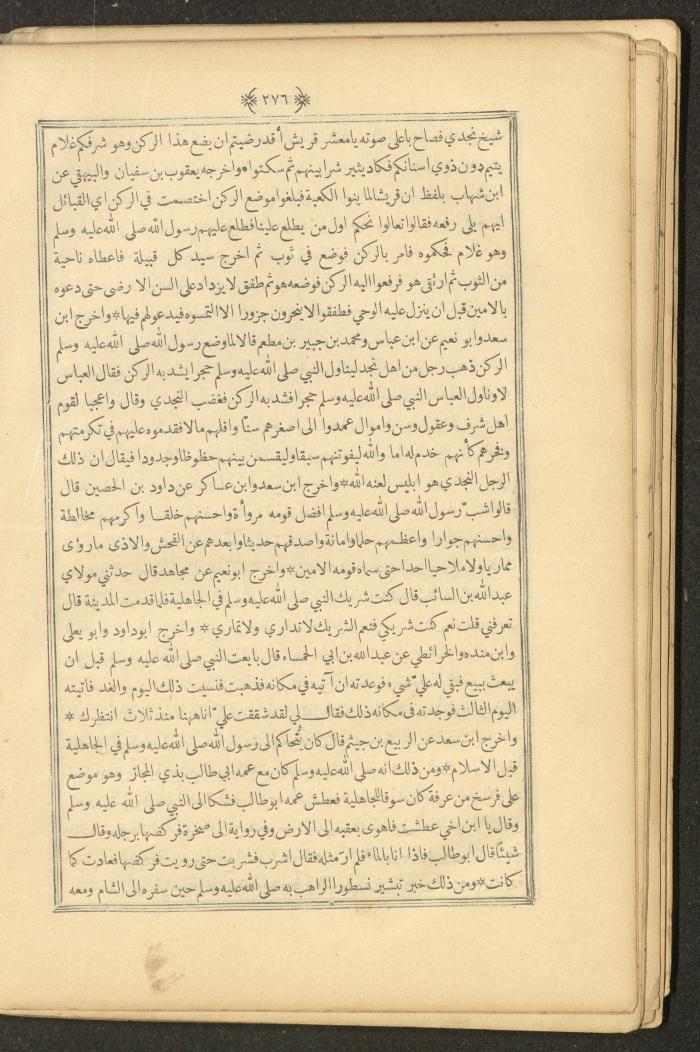 ٢٧٦
شيخ نجدي فصاح باعلى صوته يا معشر قريش أقد رضيتم ان يضع هذا الركن وهو شرفكم غلام
يتيم دون ذوي اسنانكم فكاد يثير شرا بينهم ثم سكتوا* واخرجه يعقوب بن سفيان والبيهقي عن
ابن شهاب بلفظ ان قريشا لما بنوا الكعبة فبلغوا موضع الركن اختصمت في الركن اي القبائل
ايهم يلى رفعه فقالوا تعالوا نحكم اول من يطلع علينا فطلع عليهم رسول الله صلى الله عليه وسلم
وهو غلام فحكموه فامر بالركن فوضع في ثوب ثم اخرج سيد كل قبيلة فاعطاه ناحية
من الثوب ثم ارتقى هو فرفعوا اليه الركن فوضعه هو ثم طفق لا يزداد على السن الا رضى حتى دعوه
بالامين قبل ان ينزل عليه الوحي فطفقوا لا ينحرون جزورا الا التمسوه فيدعو لهم فيها* واخرج ابن
سعد وابو نعيم عن ابن عباس ومحمد بن جبير بن مطعم قالا لما وضع رسول الله صلى الله عليه وسلم
الركن ذهب رجل من اهل نجد ليناول النبي صلى الله عليه وسلم حجرا يشد به الركن فقال العباس
لا وناول العباس النبي صلى الله عليه وسلم حجرا فشد به الركن فغضب النجدي وقال واعجبا لقوم
اهل شرف وعقول وسن واموال عمدوا الى اصغرهم سنّا واقلهم مالا فقدموه عليهم في تكرمتهم
وفخرهم كأنهم خدم له اما والله ليفوتنهم سبقا وليقسمن بينهم حظوظا وجدودا فيقال ان ذلك
الرجل النجدي هو ابليس لعنه الله* واخرج ابن سعد وابن عساكر عن داود بن الحصين قال
قالوا شبّ رسول الله صلى الله عليه وسلم افضل قومه مروأة واحسنهم خلقا واكرمهم مخالطة
واحسنهم جوارا واعظمهم حلما وامانة واصدقهم حديثا وابعدهم عن الفحش والاذى ما رؤى
مماريا ولا ملاحيا احدا حتى سماه قومه الامين* واخرج ابو نعيم عن مجاهد قال حدثني مولاي
عبد الله بن السائب قال كنت شريك النبي صلى الله عليه وسلم في الجاهلية فلما قدمت المدينة قال
تعرفني قلت نعم كنت شريكي فنعم الشريك لا تداري ولا تماري* واخرج ابو داود وابو يعلى
وابن منده والخرائطي عن عبد الله بن ابي الحمساء قال بايعت النبي صلى الله عليه وسلم قبل ان
يبعث ببيع فبقي له عليّ شيء فوعدته ان آتيه في مكانه فذهبت فنسيت ذلك اليوم والغد فاتيته
اليوم الثالث فوجدته في مكانه ذلك فقال لي لقد شققت عليّ انا ههنا منذ ثلاث انتظرك *
واخرج ابن سعد عن الربيع بن خيثم قال كان يُتحاكم الى رسول الله صلى الله عليه وسلم في الجاهلية
قبل الاسلام* ومن ذلك انه صلى الله عليه وسلم كان مع عمه ابي طالب بذي المجاز وهو موضع
على فرسخ من عرفة كان سوقا للجاهلية فعطش عمه ابو طالب فشكا الى النبي صلى الله عليه وسلم
وقال يا ابن اخي عطشت فاهوى بعقبه الى الارض وفي رواية الى صخرة فركضها برجله وقال
شيئًا قال ابو طالب فاذا انا بالماء فلم ار مثله فقال اشرب فشربت حتى رويت فركضها فعادت كما
كانت* ومن ذلك خبر تبشير نسطورا الراهب به صلى الله عليه وسلم حين سفره الى الشام ومعه